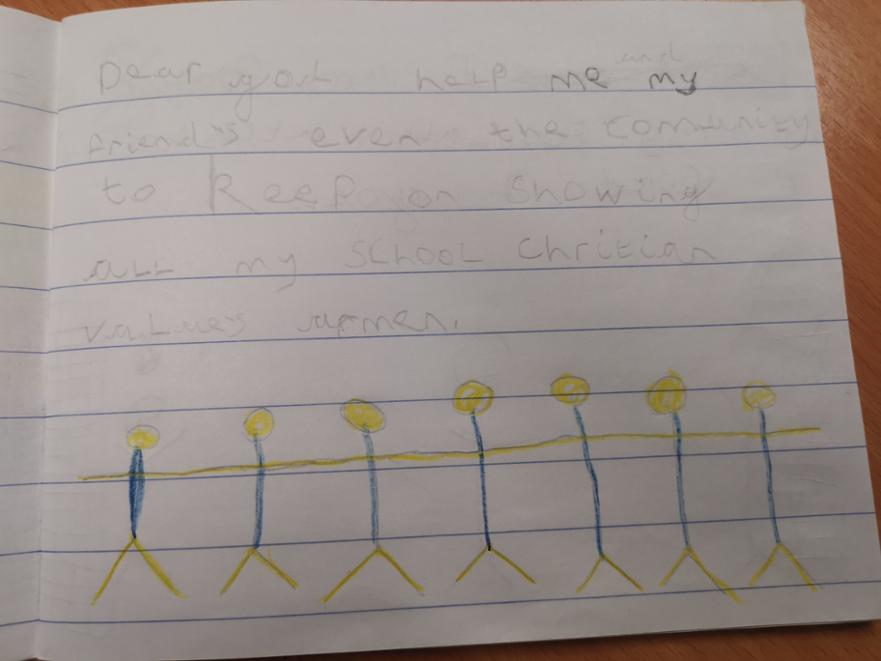 Dear god help me and my
friend's even the comunity
to Keep on showing
all my school Chritian
value's armen.